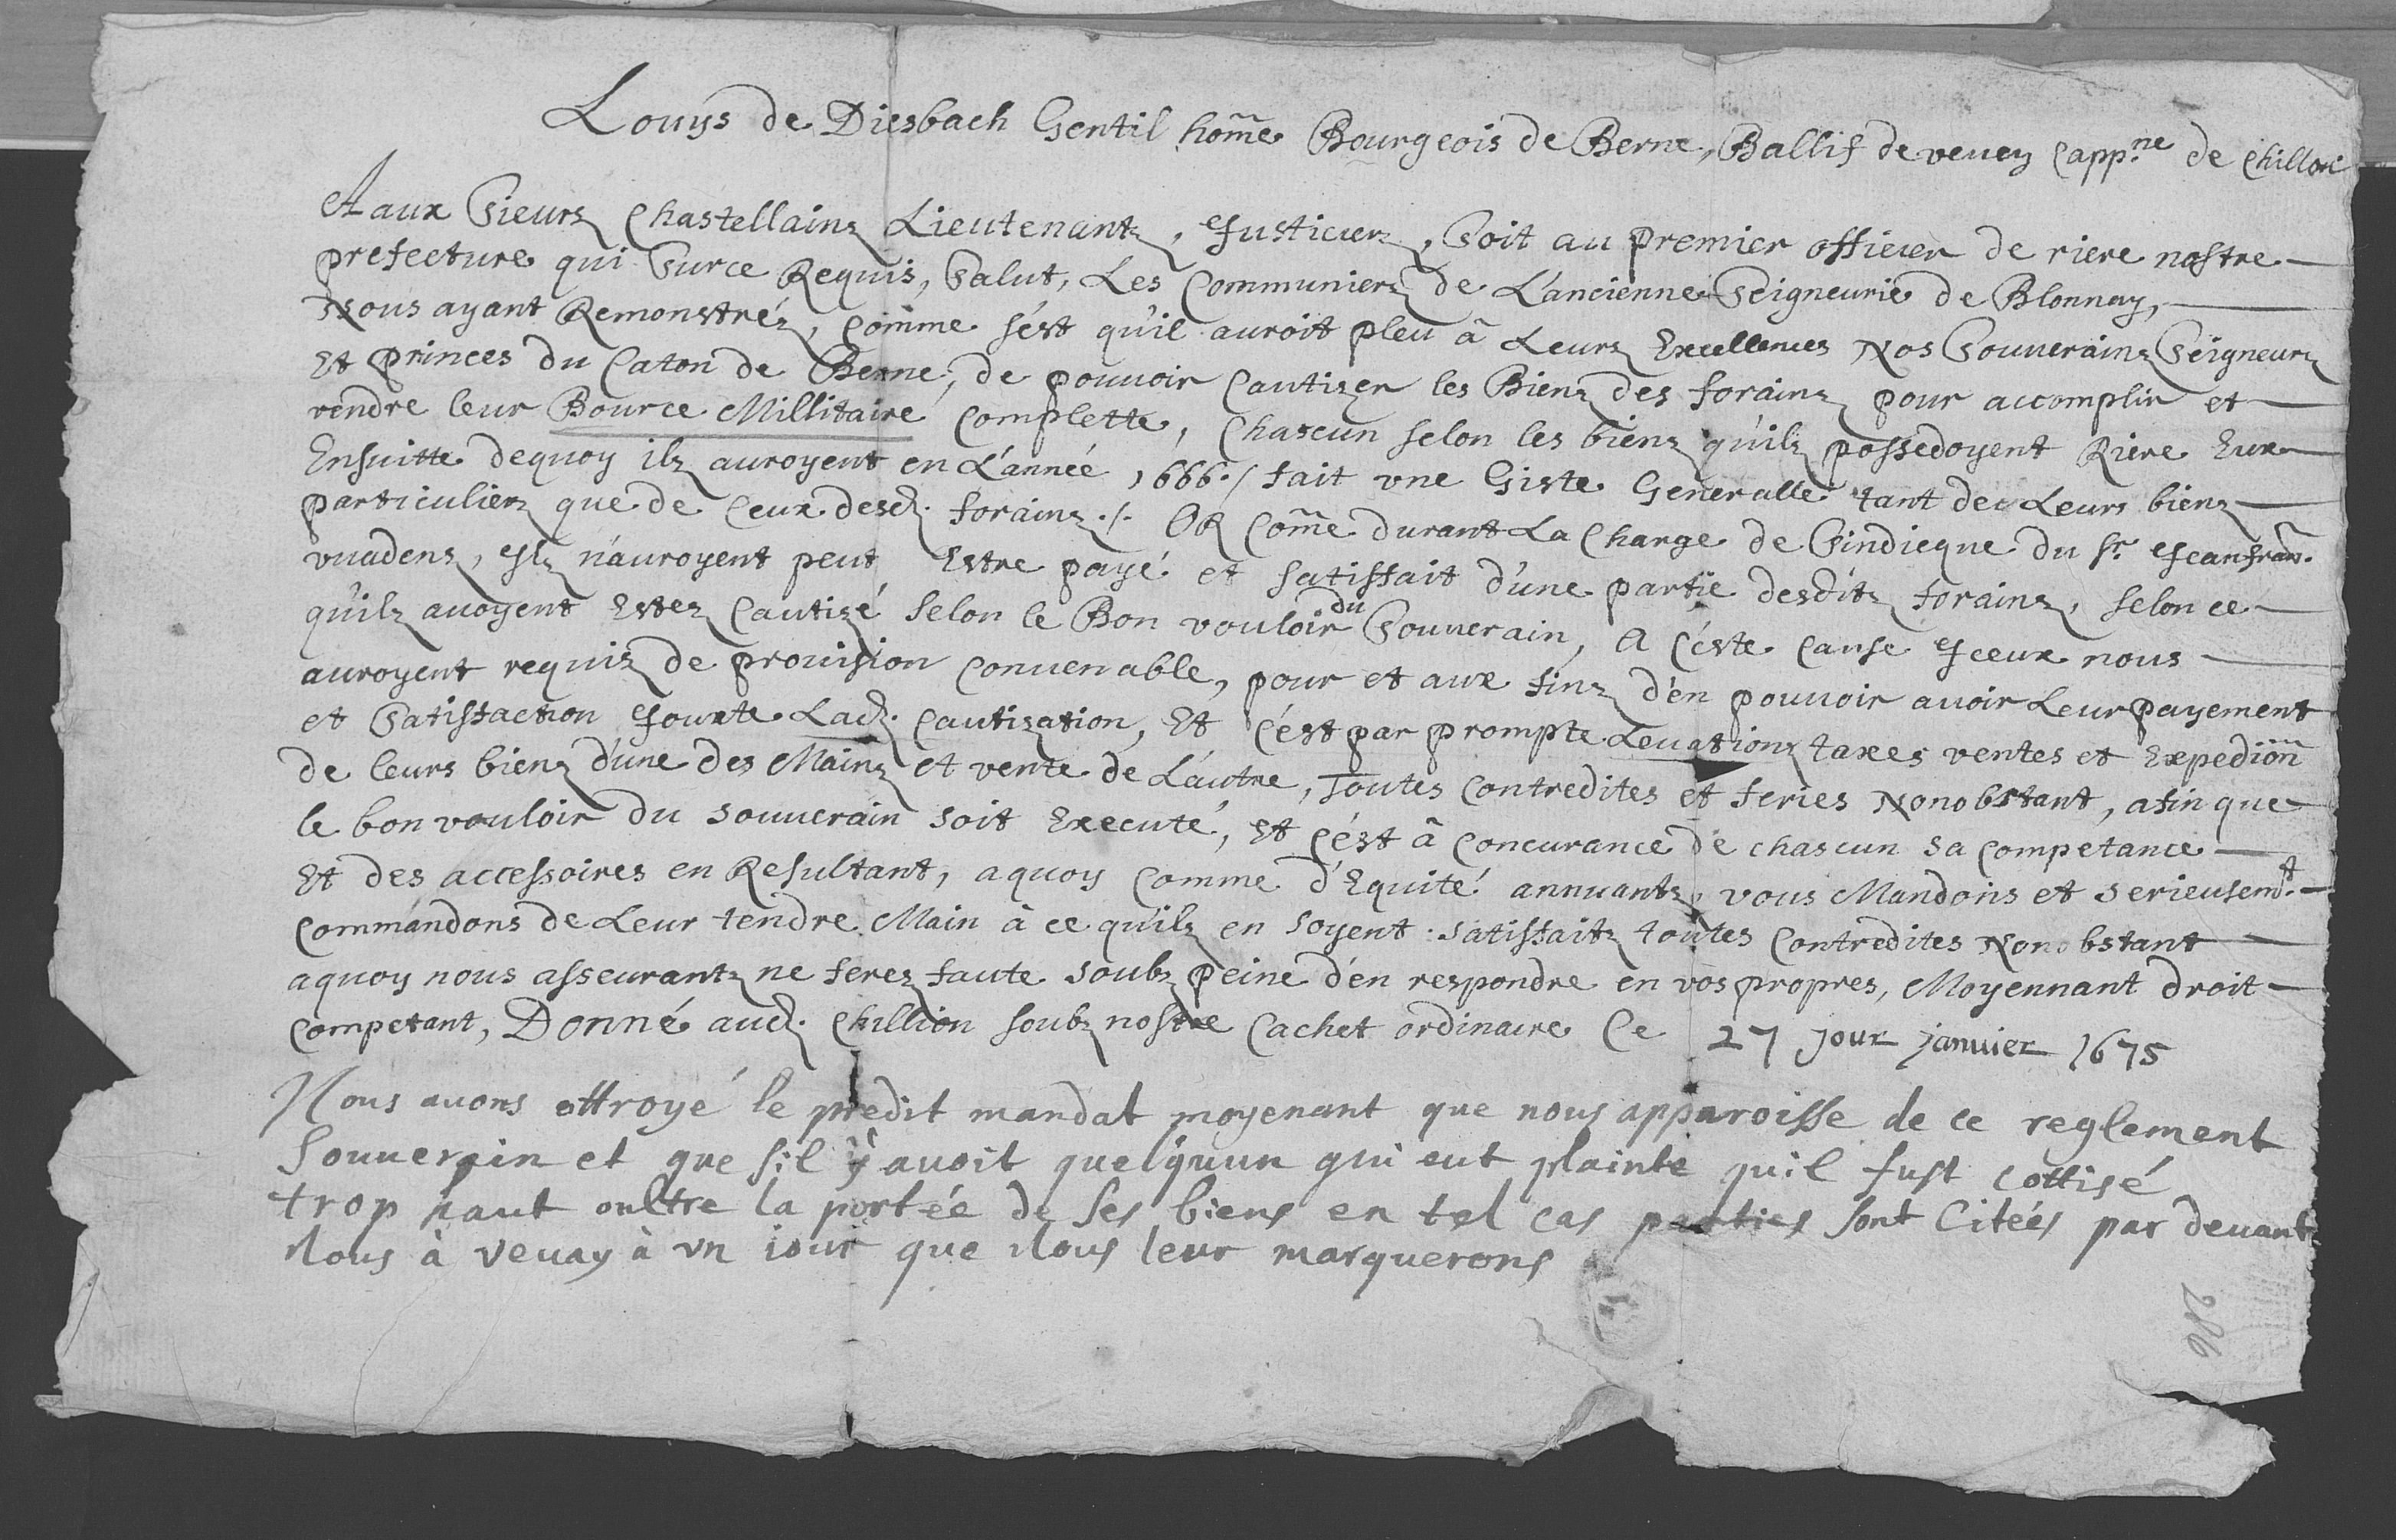 Louys de Diesbach Gentil hom̃e Bourgeois de Berne, Ballif de veuey Capp.ne de Chillon
A aux Sieurs Chastellains Lieutenants, Justiciers, Soit au premier officier de riere nostre
prefecture qui Surce Requis, Salut, Les Communiers de L'ancienne Seigneurie de Blonnay,
Nous ayant Remonstréz, comme s'est qu'il auroit pleu â Leurs Excellences Nos Souuerains Seigneurs
Et Princes du Caton de Berne, de pouuoir Cautizer les Biens des forains pour accomplir et
rendre leur Bource Millitaire Complette, Chascun selon les biens qu'ils possedoyent Riere Eux
Ensuitte dequoy ils auroyent en L'année 1666./ fait vne Giste Generalle tant de Leurs biens
particuliers que de Ceux desd. forains./. OR Com̃e durant La Charge de Sindicque du Sr. Jeanfran.
vuadens, Ils n'auroyent peut Estre payé et satisfait d'une partie desdits forains, selon ce
qu'ils auoyent Estez Cautizé selon le Bon vouloir du Souuerain, A Céste Cause Jceux nous
auroyent requis de prouision Conuenable, pour et aux fins d'en pouuoir auoir Leur payement
et Satisfaction Jouxte Lad. Cautization, Et C'est par prompte Leuations taxes ventes et Expediõn
de leurs biens d'une des Mains et vente de L'autre, Toutes Contredites et feries Nonobstant, afin que
le bon vouloir du Souuerain soit Executé, Et C'ést â Concurance de chascun sa Competance
Et des accessoires en Resultant, aquoy Comme d'Equité annuants, vous Mandons et serieusem.t
Commandons de Leur tendre Main à ce qu'ils en soyent satisfaits toutes Contredites Nonobstant
aquoy nous asseurants ne ferez faute soubs Peine d'en respondre en vos propres, Moyennant droit
Competant, Donné aud. Chillion soubs nostre Cachet ordinaire Ce 27 Jour Januier 1675
Nous auons ottroyé le predit mandat moyenant que nous apparoisse de ce reglement
Souuerain et que sil y auoit quelquun qui eut plainte quil fust cottisé
trop haut oultre la portée de ses biens en tel cas parties sont Citées par deuant
Nous à Veuay à vn iour que Nous leur marquerons
286